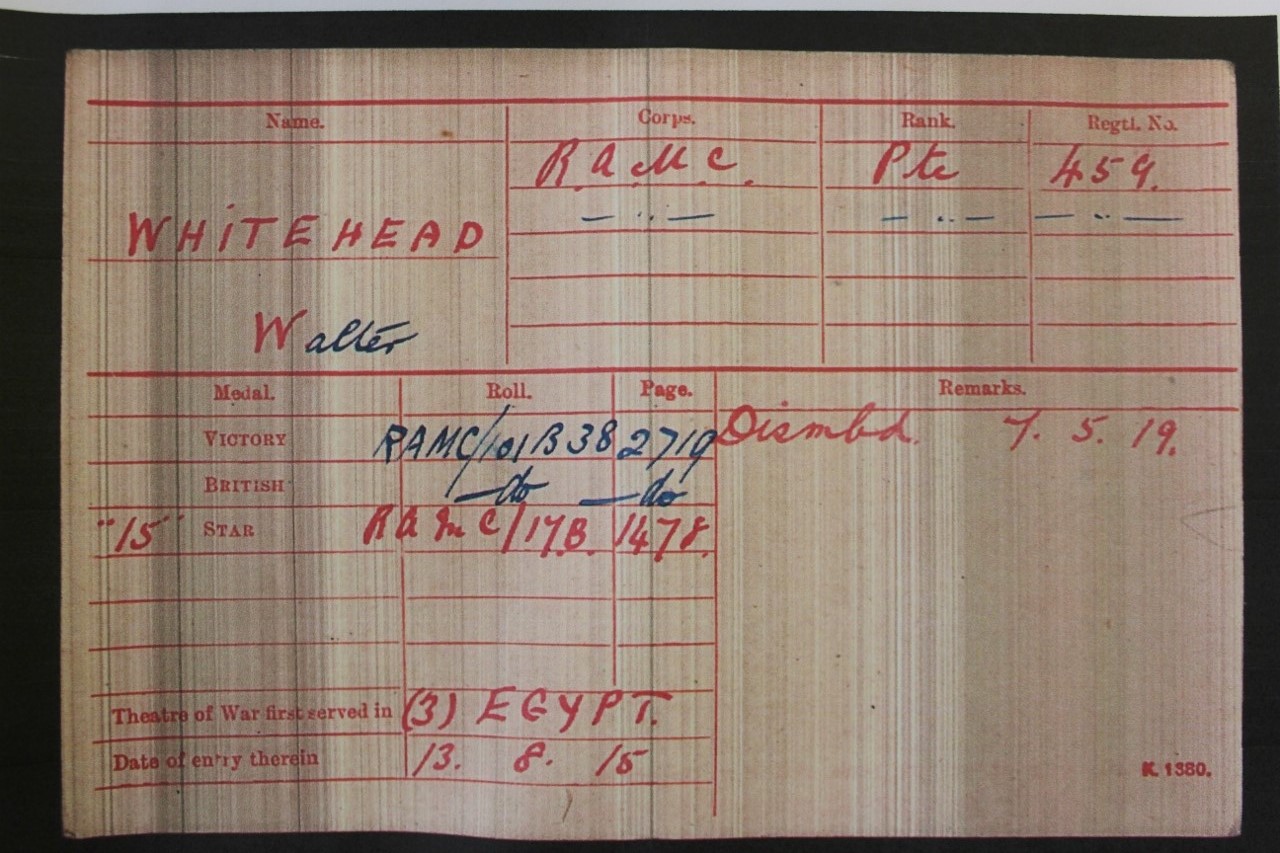 Name. Corps. Rank. Regtl. No.
R.A.M.C. Pte 459.
WHITEHEAD — ·· — — ·· — — ·· —
Walter
Medal. Roll. Page. Remarks.
VICTORY RAMC/101B38 2719 Dismbd. 7. 5. 19.
BRITISH —do —do
"15" STAR RAMC/17B. 1478.
Theatre of War first served in (3) EGYPT.
Date of entry therein 13. 8. 15
K. 1380.